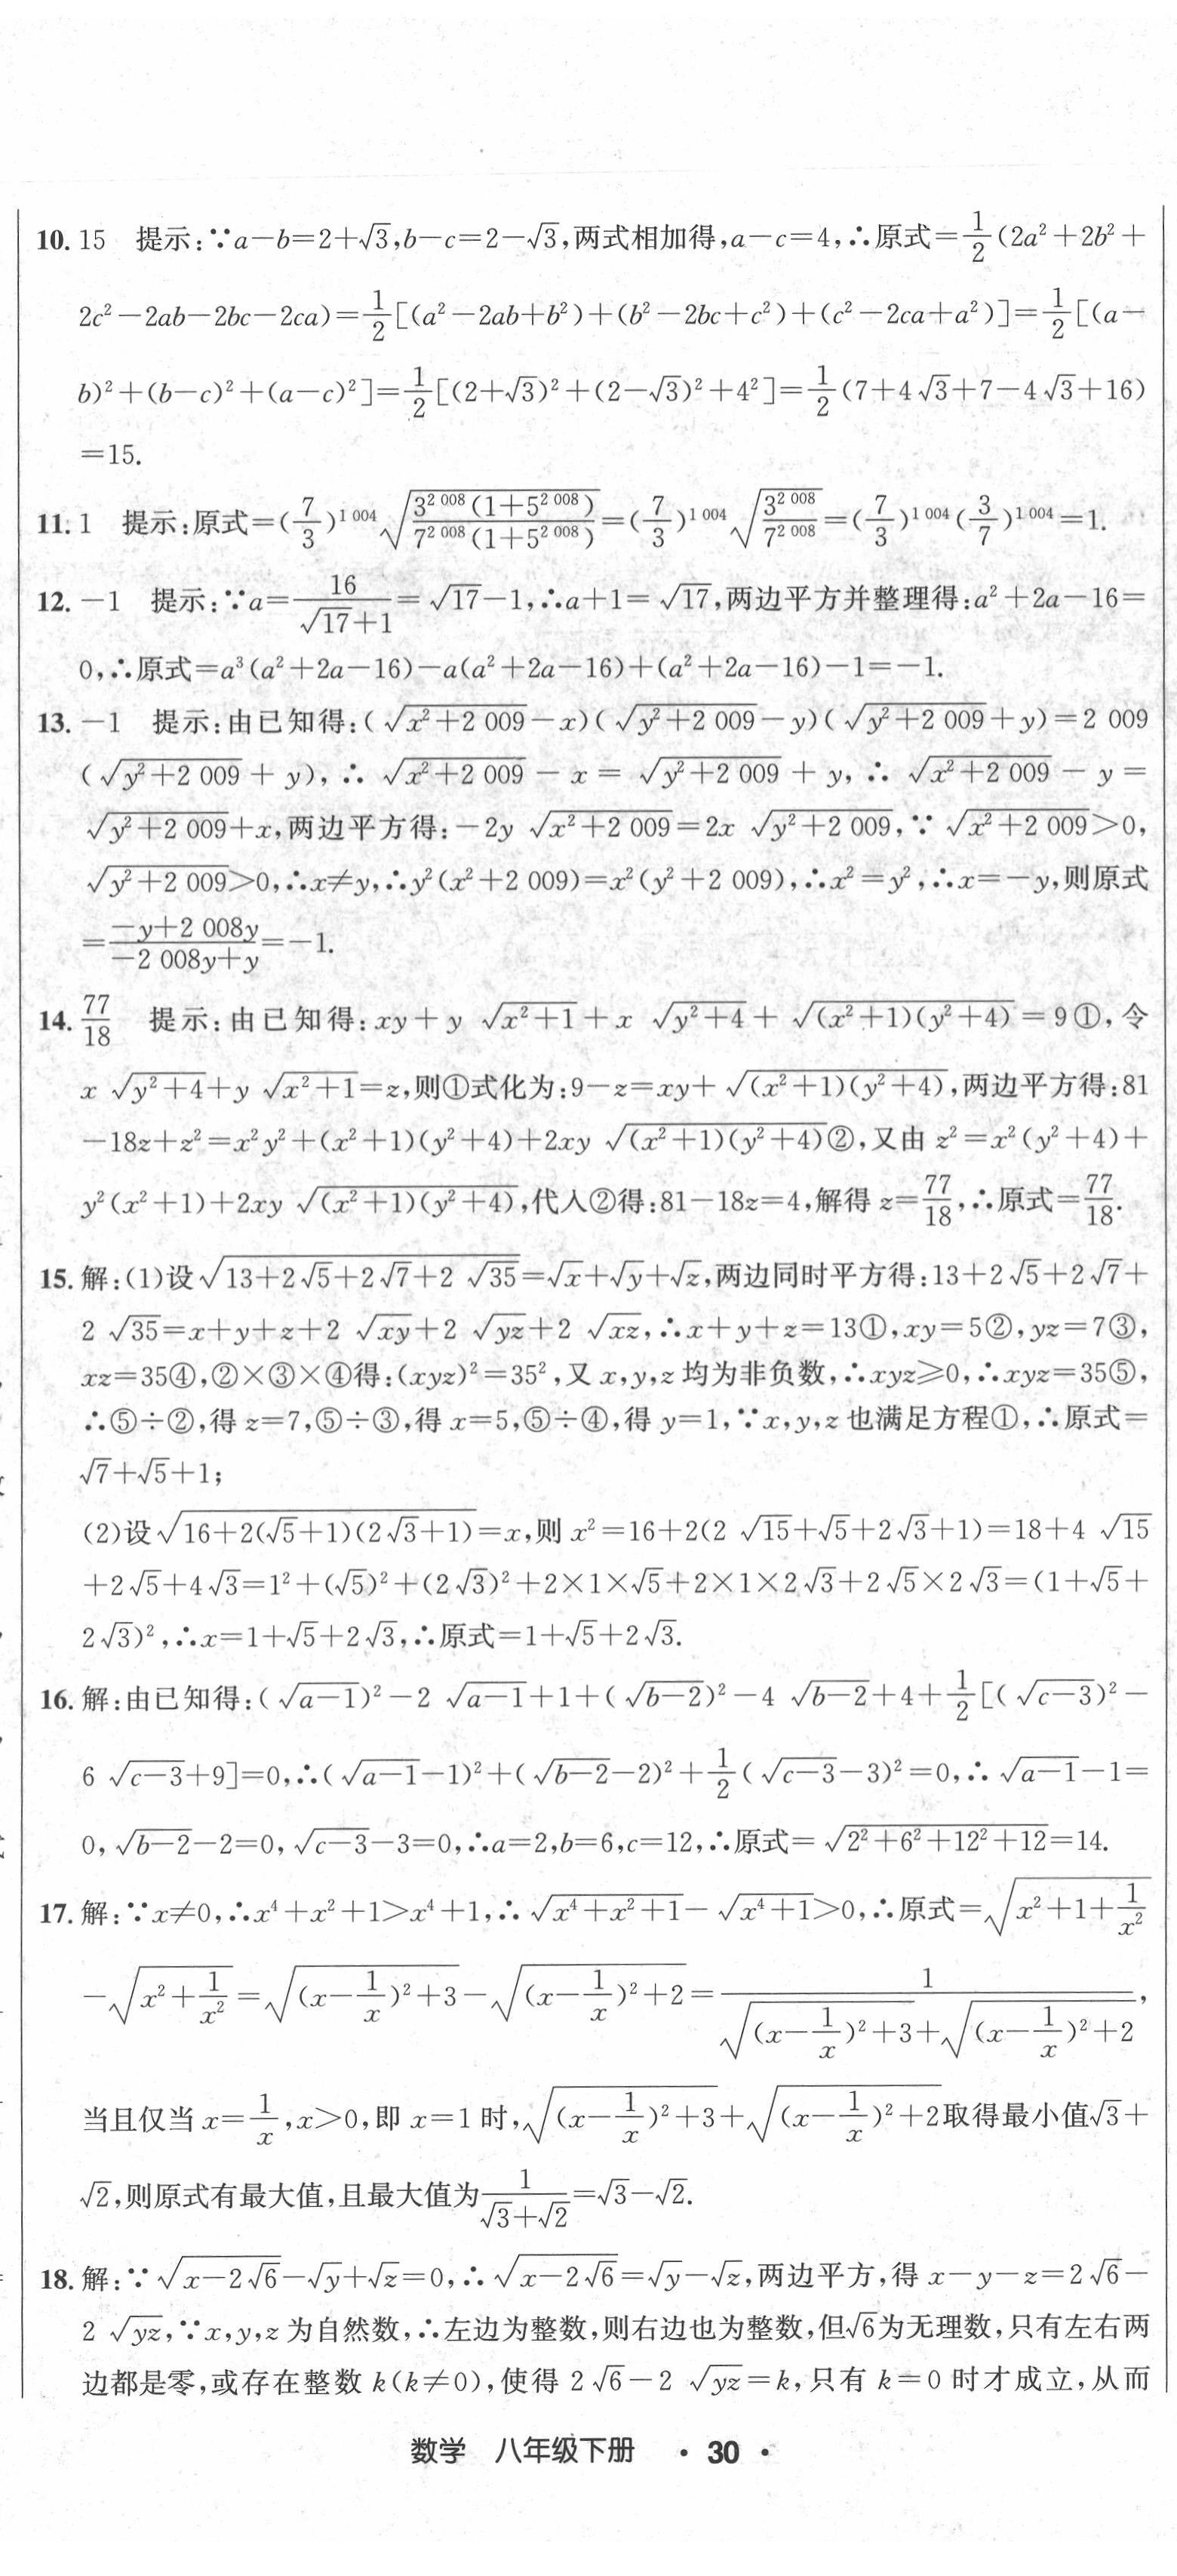 10. 15 提示:∵a−b=2+√3,b−c=2−√3,两式相加得,a−c=4,∴原式=1/2(2a²+2b²+
2c²−2ab−2bc−2ca)=1/2[(a²−2ab+b²)+(b²−2bc+c²)+(c²−2ca+a²)]=1/2[(a−
b)²+(b−c)²+(a−c)²]=1/2[(2+√3)²+(2−√3)²+4²]=1/2(7+4√3+7−4√3+16)
=15.
11. 1 提示:原式=(7/3)^(1 004)√(3^(2 008)(1+5^(2 008))/7^(2 008)(1+5^(2 008)))=(7/3)^(1 004)√(3^(2 008)/7^(2 008))=(7/3)^(1 004)(3/7)^(1 004)=1.
12. −1 提示:∵a=16/(√17+1)=√17−1,∴a+1=√17,两边平方并整理得:a²+2a−16=
0,∴原式=a³(a²+2a−16)−a(a²+2a−16)+(a²+2a−16)−1=−1.
13. −1 提示:由已知得:(√(x²+2 009)−x)(√(y²+2 009)−y)(√(y²+2 009)+y)=2 009
(√(y²+2 009)+y),∴√(x²+2 009)−x=√(y²+2 009)+y,∴√(x²+2 009)−y=
√(y²+2 009)+x,两边平方得:−2y√(x²+2 009)=2x√(y²+2 009),∵√(x²+2 009)>0,
√(y²+2 009)>0,∴x≠y,∴y²(x²+2 009)=x²(y²+2 009),∴x²=y²,∴x=−y,则原式
=(−y+2 008y)/(−2 008y+y)=−1.
14. 77/18 提示:由已知得:xy+y√(x²+1)+x√(y²+4)+√((x²+1)(y²+4))=9①,令
x√(y²+4)+y√(x²+1)=z,则①式化为:9−z=xy+√((x²+1)(y²+4)),两边平方得:81
−18z+z²=x²y²+(x²+1)(y²+4)+2xy√((x²+1)(y²+4))②,又由z²=x²(y²+4)+
y²(x²+1)+2xy√((x²+1)(y²+4)),代入②得:81−18z=4,解得z=77/18,∴原式=77/18.
15. 解:(1)设√(13+2√5+2√7+2√35)=√x+√y+√z,两边同时平方得:13+2√5+2√7+
2√35=x+y+z+2√xy+2√yz+2√xz,∴x+y+z=13①,xy=5②,yz=7③,
xz=35④,②×③×④得:(xyz)²=35²,又x,y,z均为非负数,∴xyz≥0,∴xyz=35⑤,
∴⑤÷②,得z=7,⑤÷③,得x=5,⑤÷④,得y=1,∵x,y,z也满足方程①,∴原式=
√7+√5+1;
(2)设√(16+2(√5+1)(2√3+1))=x,则x²=16+2(2√15+√5+2√3+1)=18+4√15
+2√5+4√3=1²+(√5)²+(2√3)²+2×1×√5+2×1×2√3+2√5×2√3=(1+√5+
2√3)²,∴x=1+√5+2√3,∴原式=1+√5+2√3.
16. 解:由已知得:(√(a−1))²−2√(a−1)+1+(√(b−2))²−4√(b−2)+4+1/2[(√(c−3))²−
6√(c−3)+9]=0,∴(√(a−1)−1)²+(√(b−2)−2)²+1/2(√(c−3)−3)²=0,∴√(a−1)−1=
0,√(b−2)−2=0,√(c−3)−3=0,∴a=2,b=6,c=12,∴原式=√(2²+6²+12²+12)=14.
17. 解:∵x≠0,∴x⁴+x²+1>x⁴+1,∴√(x⁴+x²+1)−√(x⁴+1)>0,∴原式=√(x²+1+1/x²)
−√(x²+1/x²)=√((x−1/x)²+3)−√((x−1/x)²+2)=1/(√((x−1/x)²+3)+√((x−1/x)²+2)),
当且仅当x=1/x,x>0,即x=1时,√((x−1/x)²+3)+√((x−1/x)²+2)取得最小值√3+
√2,则原式有最大值,且最大值为1/(√3+√2)=√3−√2.
18. 解:∵√(x−2√6)−√y+√z=0,∴√(x−2√6)=√y−√z,两边平方,得x−y−z=2√6−
2√yz,∵x,y,z为自然数,∴左边为整数,则右边也为整数,但√6为无理数,只有左右两
边都是零,或存在整数k(k≠0),使得2√6−2√yz=k,只有k=0时才成立,从而
数学 八年级下册 · 30 ·